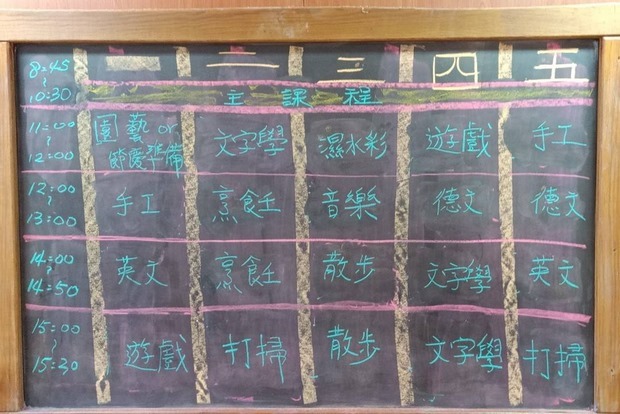 8:45 一 二 三 四 五
~
10:30 主課程
11:00 園藝 or 文字學 濕水彩 遊戲 手工
~
12:00 節慶準備
12:00 手工 烹飪 音樂 德文 德文
~
13:00
14:00 英文 烹飪 散步 文字學 英文
~
14:50
15:00 遊戲 打掃 散步 文字學 打掃
~
15:30